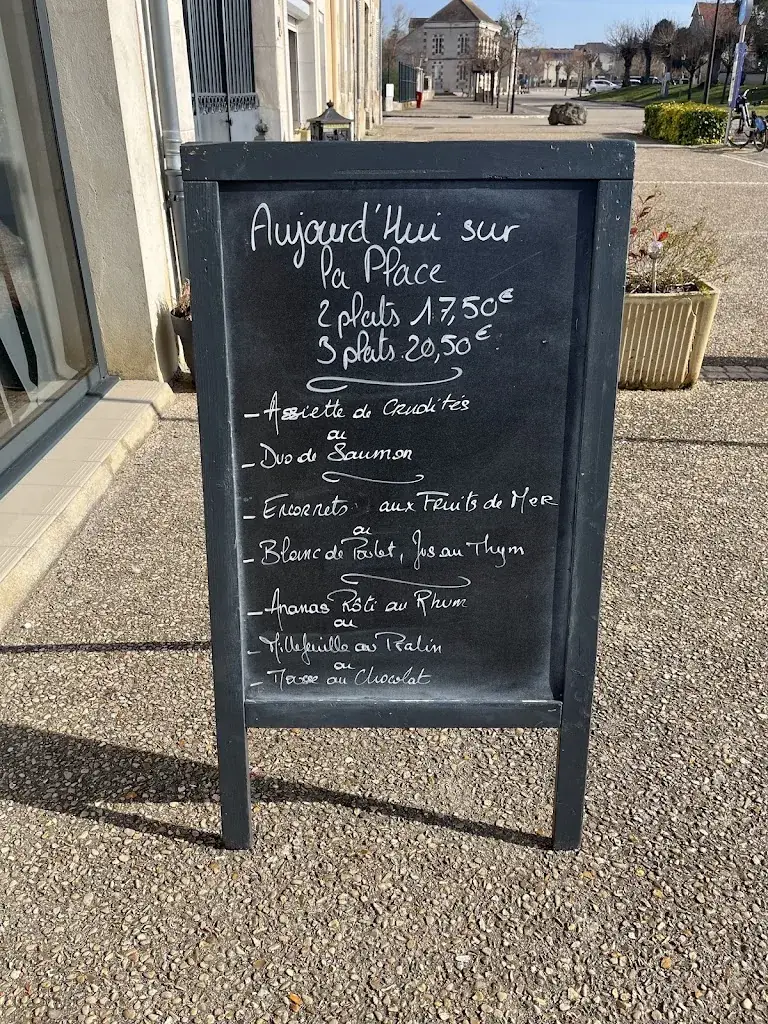 Aujourd'Hui sur
la Place
2 plats 17,50€
3 plats 20,50€
- Assiette de Crudités
ou
- Duo de Saumon
- Encornets aux Fruits de Mer
ou
- Blanc de Poulet, Jus au Thym
- Ananas Rôti au Rhum
ou
- Millefeuille au Pralin
ou
- au Chocolat